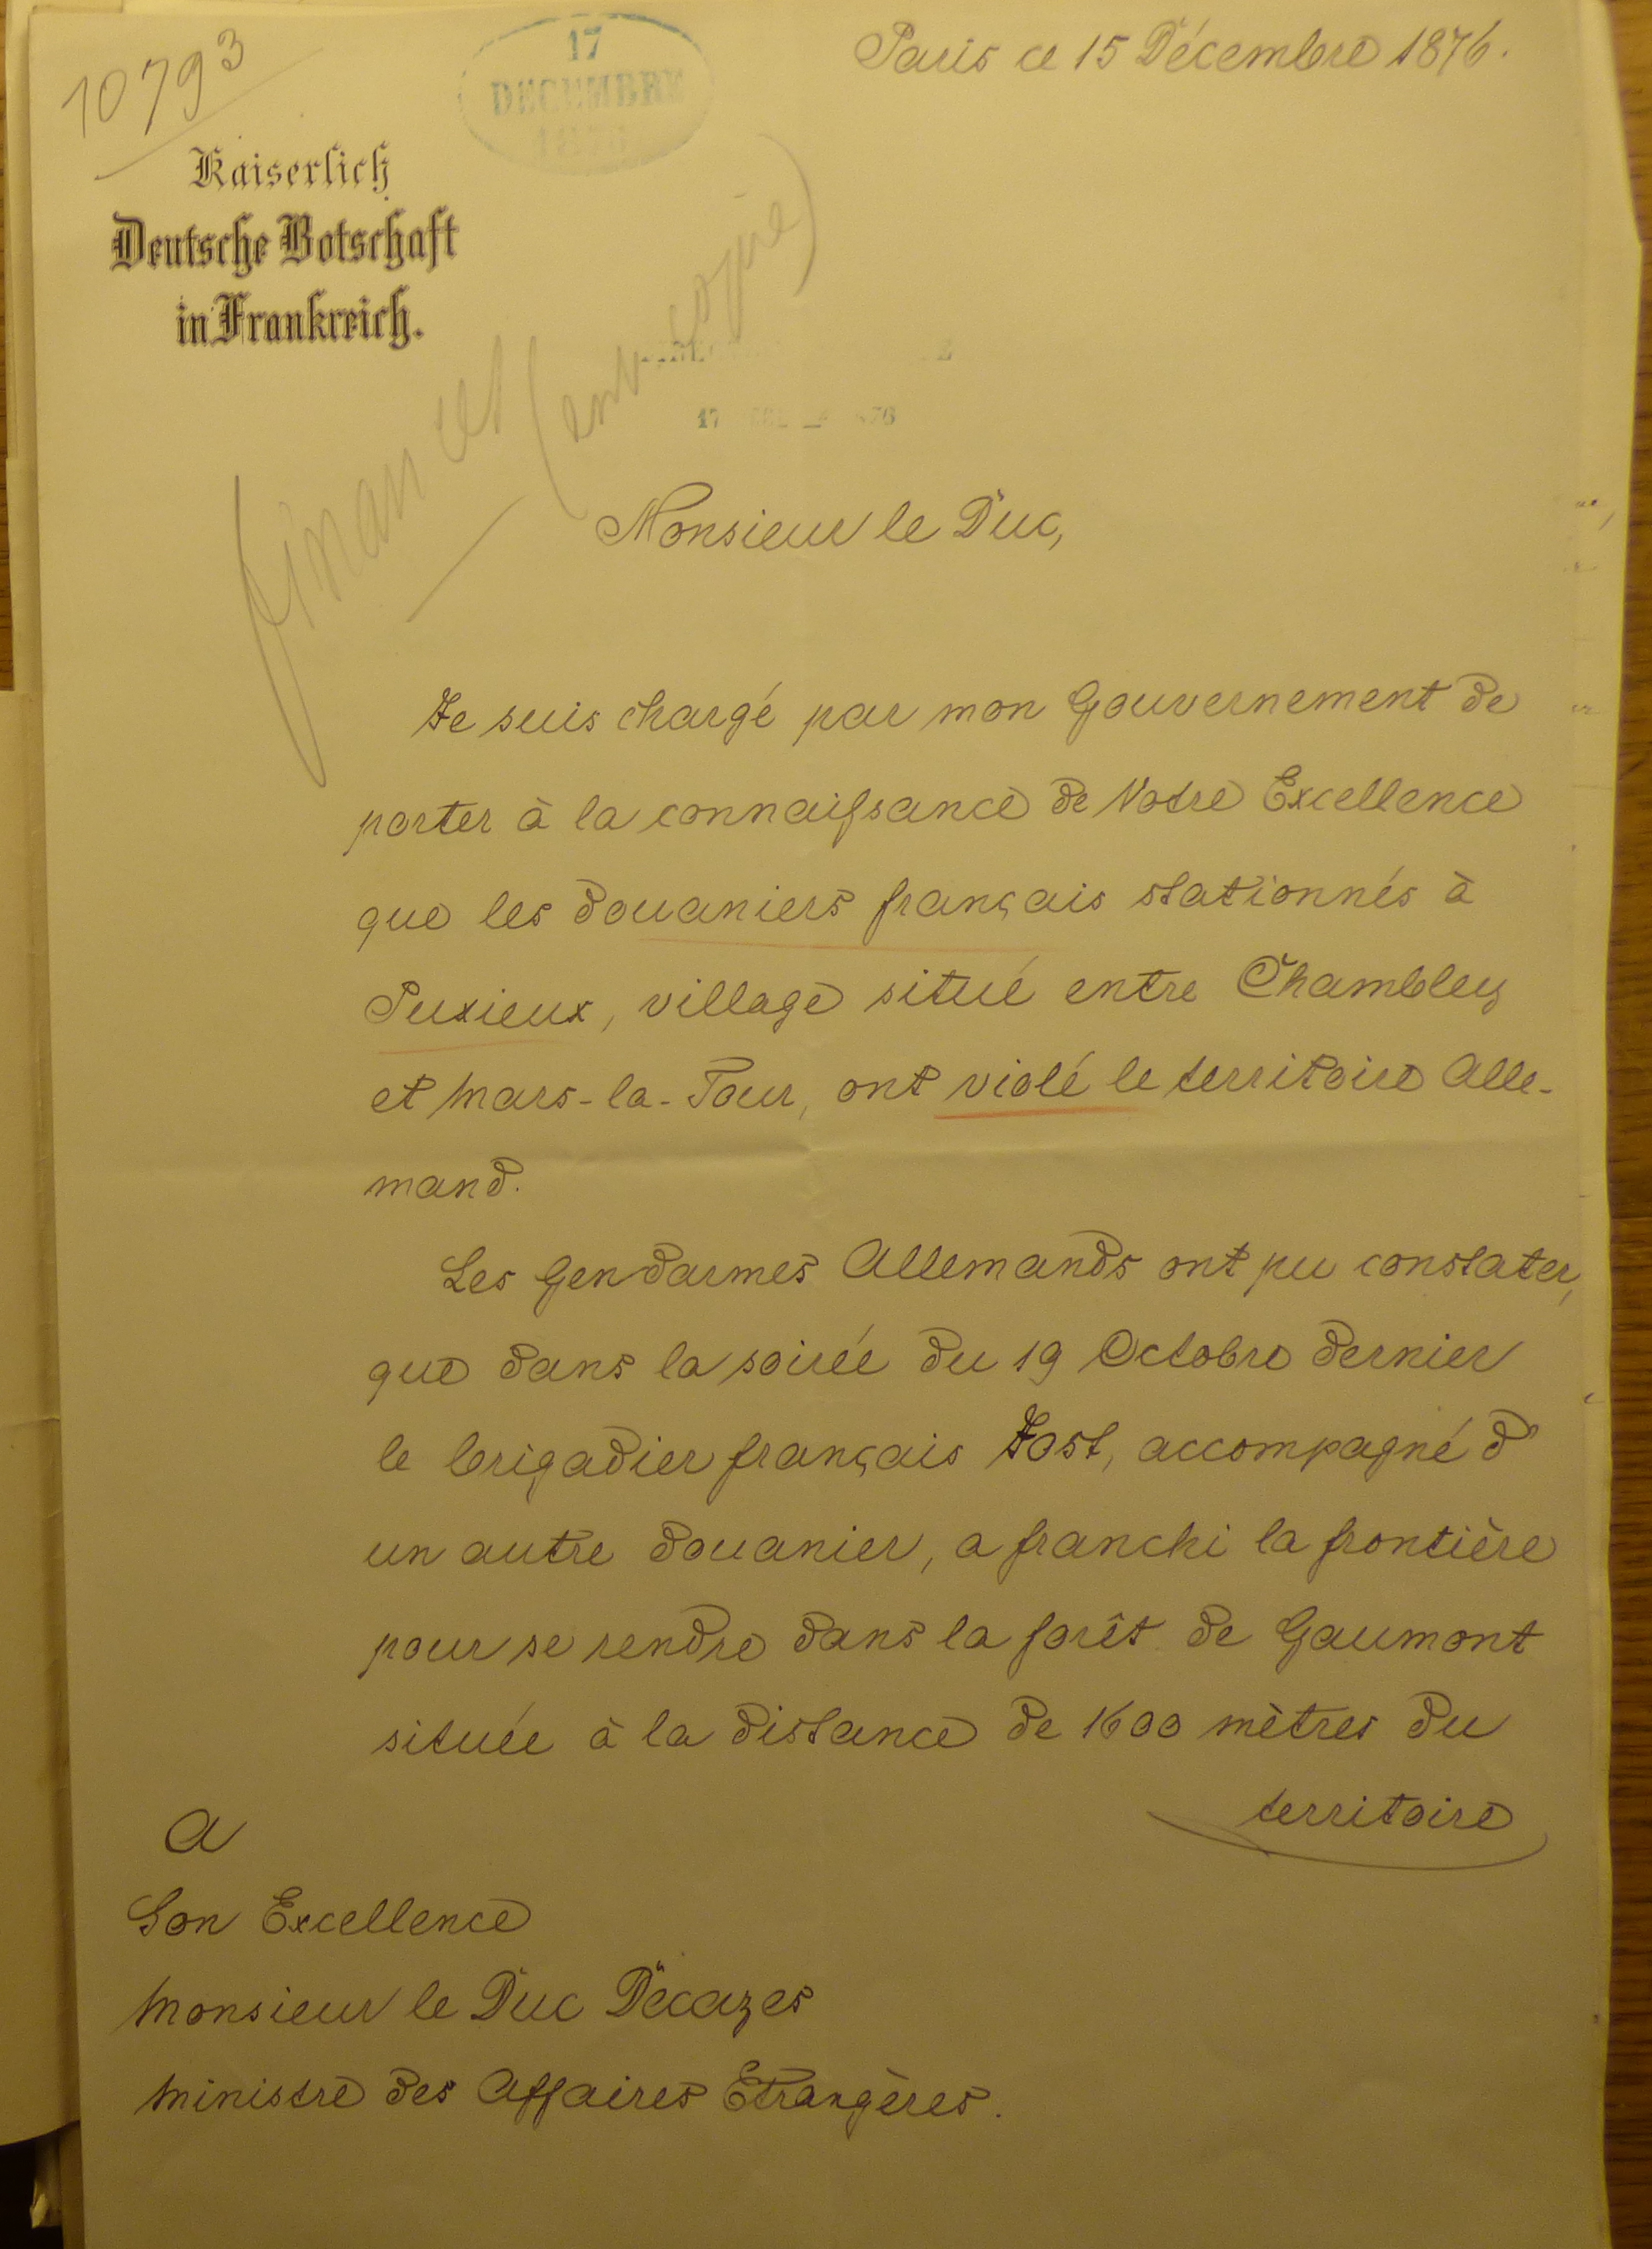 10793
17
DECEMBRE
1876
Paris ce 15 Décembre 1876.
Kaiserlich
Deutsche Botschaft
in Frankreich.
finances (env. copie)
17 1876
Monsieur le Duc,
Je suis chargé par mon Gouvernement de
porter à la connaissance de Votre Excellence
que les douaniers français stationnés à
Puxieux, village situé entre Chambley
et Mars-la-Tour, ont violé le territoire Alle-
mand.
Les Gendarmes Allemands ont pu constater,
que dans la soirée du 19 Octobre dernier
le brigadier français Jost, accompagné d'
un autre douanier, a franchi la frontière
pour se rendre dans la forêt de Gaumont
située à la distance de 1600 mètres du
territoire
A
Son Excellence
Monsieur le Duc Decazes
Ministre des Affaires Etrangères.